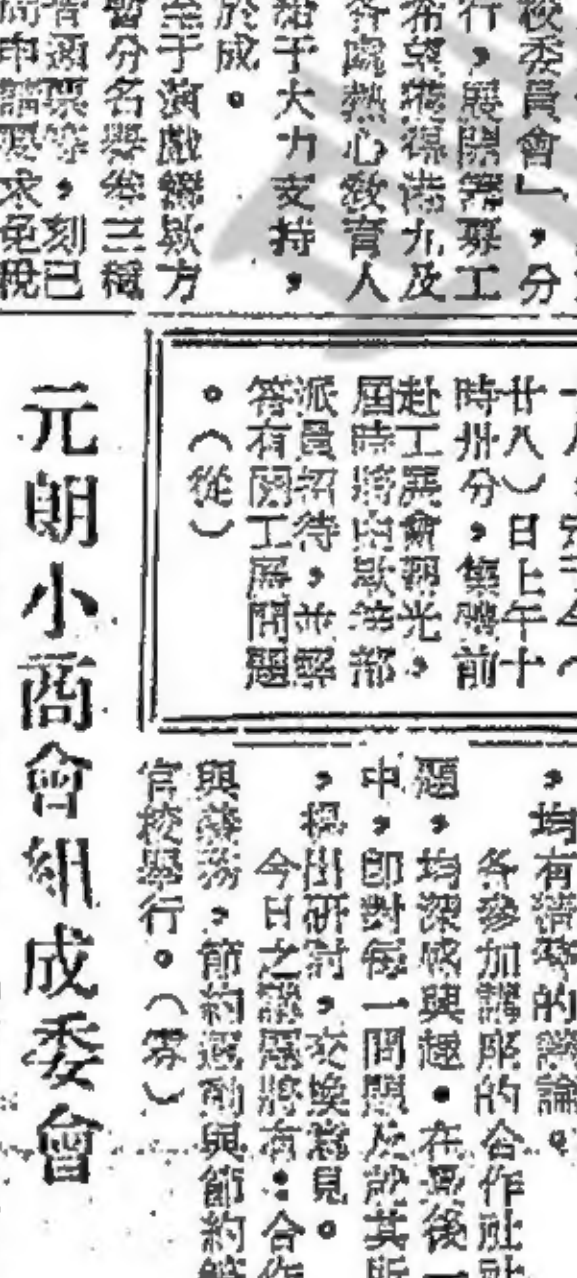 校委員會」,分
行,展開籌募工
希望獲得港九及
各處熱心教育人
給于大力支持,
於成。
至于演戲籌欵方
暫分名譽券三種
普通票等,刻已
局申請要求免稅
廿八)日上午十
時卅分,集機前
赴工展會觀光。
屆時將由歡迎部
派員招待,並解
答有關工展問題
。(從)
,均有精彩的議論。
各參加講座的合作社社
題,均深感興趣。在最後一
中,即對每一問題及
,提出研討,交換意見。
今日之議程將有:合作
與業務,節約運動與節約
官校舉行。(雰)
元朗小商會組成委會